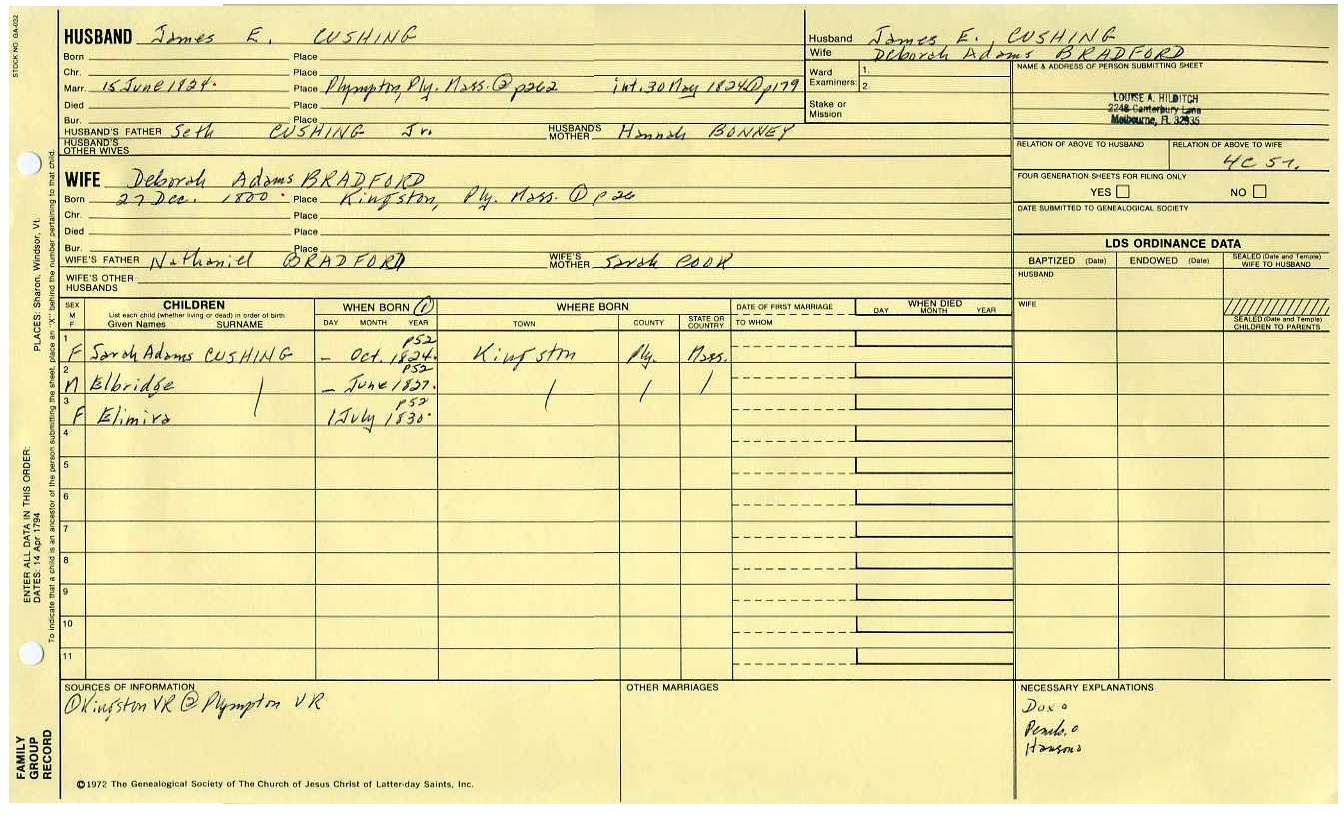 STOCK NO. GA-032
HUSBAND James E. CUSHING
Born Place
Chr. Place
Marr. 15 June 1824. Place Plympton, Ply. Mass. ② p262 int. 30 May 1824 ① p179
Died Place
Bur. Place
HUSBAND'S FATHER Seth CUSHING Jr. HUSBAND'S MOTHER Hannah BONNEY
HUSBAND'S OTHER WIVES
Husband James E. CUSHING
Wife Deborah Adams BRADFORD
Ward Examiners: 1. 2.
Stake or Mission
NAME & ADDRESS OF PERSON SUBMITTING SHEET
LOUISE A. HILDITCH
2248 Canterbury Lane
Melbourne, FL 32935
RELATION OF ABOVE TO HUSBAND RELATION OF ABOVE TO WIFE
4C 5r.
FOUR GENERATION SHEETS FOR FILING ONLY
YES NO
DATE SUBMITTED TO GENEALOGICAL SOCIETY
WIFE Deborah Adams BRADFORD
Born 27 Dec. 1800. Place Kingston, Ply. Mass. ① p26
Chr. Place
Died Place
Bur. Place
WIFE'S FATHER Nathaniel BRADFORD WIFE'S MOTHER Sarah COOK
WIFE'S OTHER HUSBANDS
LDS ORDINANCE DATA
BAPTIZED (Date) ENDOWED (Date) SEALED (Date and Temple) WIFE TO HUSBAND
HUSBAND
WIFE
SEALED (Date and Temple) CHILDREN TO PARENTS
SEX M F CHILDREN WHEN BORN ① WHERE BORN DATE OF FIRST MARRIAGE WHEN DIED
List each child (whether living or dead) in order of birth
Given Names SURNAME DAY MONTH YEAR TOWN COUNTY STATE OR COUNTRY TO WHOM DAY MONTH YEAR
1 p52
F Sarah Adams CUSHING – Oct. 1824. Kingston Ply. Mass.
2 p52
M Elbridge – June 1827.
3 p52
F Elimira 1 July 1830.
4
5
6
7
8
9
10
11
SOURCES OF INFORMATION
① Kingston VR ② Plympton VR
OTHER MARRIAGES
NECESSARY EXPLANATIONS
Dux o
Pemb. o
Hanson o
©1972 The Genealogical Society of The Church of Jesus Christ of Latter-day Saints, Inc.
FAMILY GROUP RECORD
ENTER ALL DATA IN THIS ORDER:
DATES: 14 Apr 1794 PLACES: Sharon, Windsor, Vt.
To indicate that a child is an ancestor of the person submitting the sheet, place an "X" behind the number pertaining to that child.